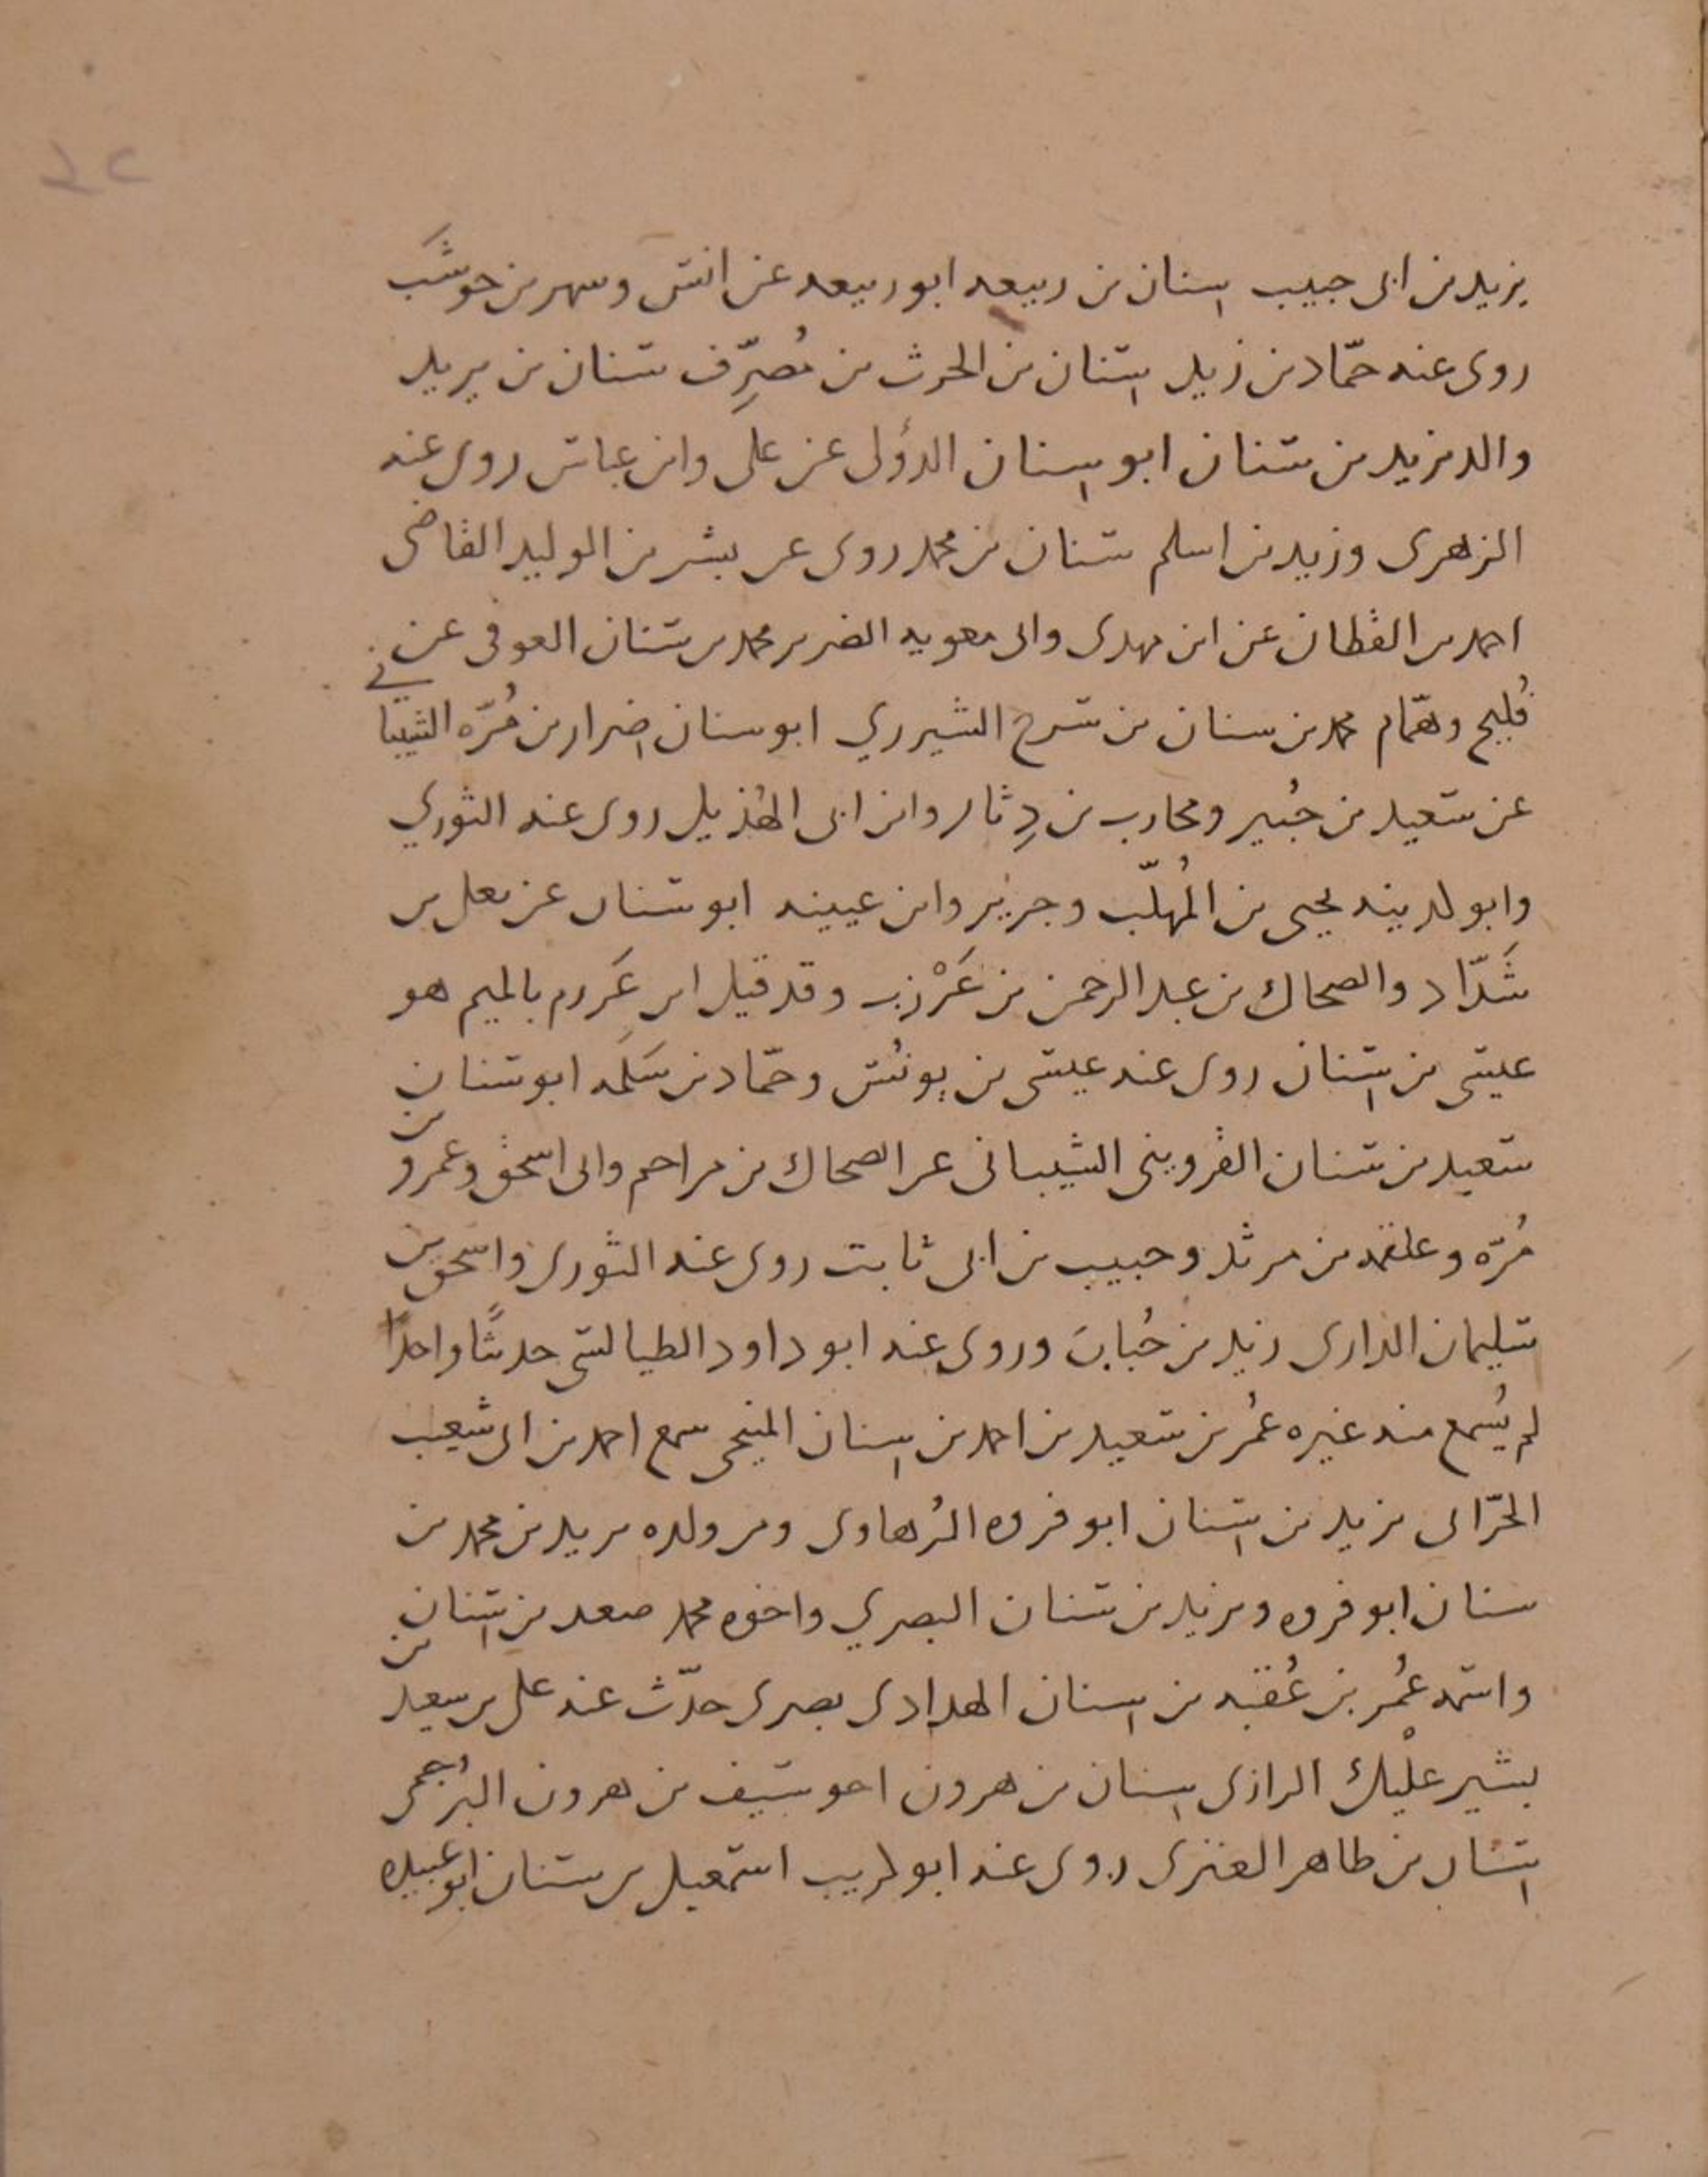 يزيد بن ابى حبيب سنان بن ربيعه ابو ربيعه عن انس وسهر بن حوشَب
روى عنه حمّاد بن زيد سنان بن الحرث بن مُصرِّف سنان بن يزيد
والد يزيد بن سنان ابو سنان الدؤلى عن على وابن عباس روى عنه
الزهرى وزيد بن اسلم سنان بن محمد روى عن بشر بن الوليد القاضى
احمد بن القطان عن ابن مهدى وابى معويه الضرير محمد بن سنان العوقى عن
فُليح وهمّام محمد بن سنان بن سرج الشيزري ابو سنان ضرار بن مُرّه الشيباني
عن سعيد بن جُبير ومحارب بن دِثار وابن ابى الهُذيل روى عنه الثوري
وابو كدينه يحيى بن المُهلّب وجرير وابن عيينه ابو سنان عن يعلى بن
شَدّاد والضحاك بن عبد الرحمن بن عَرْزب وقد قيل ابن عَرزم بالميم هو
عيسى بن سنان روى عنه عيسى بن يونُس وحمّاد بن سَلَمه ابو سنان
سعيد بن سنان القزوينى الشيبانى عن الضحاك بن مزاحم وابى اسحق وعمرو بن
مُرّه وعلقمه بن مرثد وحبيب بن ابى ثابت روى عنه الثورى واسحق بن
سليمان الرازى زيد بن حُباب وروى عنه ابو داود الطيالسى حديثًا واحدًا
لم يُسمع منه غيره عُمر بن سعيد بن احمد بن سنان المنبجى سمع احمد بن ابى شعيب
الحرّانى يزيد بن سنان ابو فروه الرُهاوى ومن ولده يزيد بن محمد بن
سنان ابو فروه ويزيد بن سنان البصري واخوه محمد صعد بن سنان
واسمه عُمر بن عُقبه بن سنان الهدادى بصرى حدّث عنه على بن سعيد بن
بشير عليْك الرازى سنان بن هرون اخو سيف بن هرون البُرجمى
سنان بن طاهر العنزى روى عنه ابو كريب اسمعيل بن سنان ابو عبيده